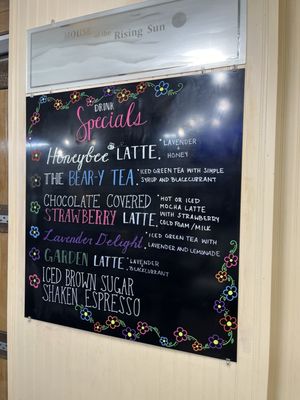 HOUSE of the Rising Sun
DRINK
Specials
Honeybee LATTE *LAVENDER
HONEY
THE BEAR-Y TEA *ICED GREEN TEA WITH SIMPLE
SYRUP AND BLACKCURRANT
CHOCOLATE COVERED *HOT OR ICED
MOCHA LATTE
STRAWBERRY LATTE WITH STRAWBERRY
COLD FOAM/MILK
Lavender Delight *ICED GREEN TEA WITH
LAVENDER AND LEMONADE
GARDEN LATTE *LAVENDER
BLACKCURRANT
ICED BROWN SUGAR
SHAKEN ESPRESSO